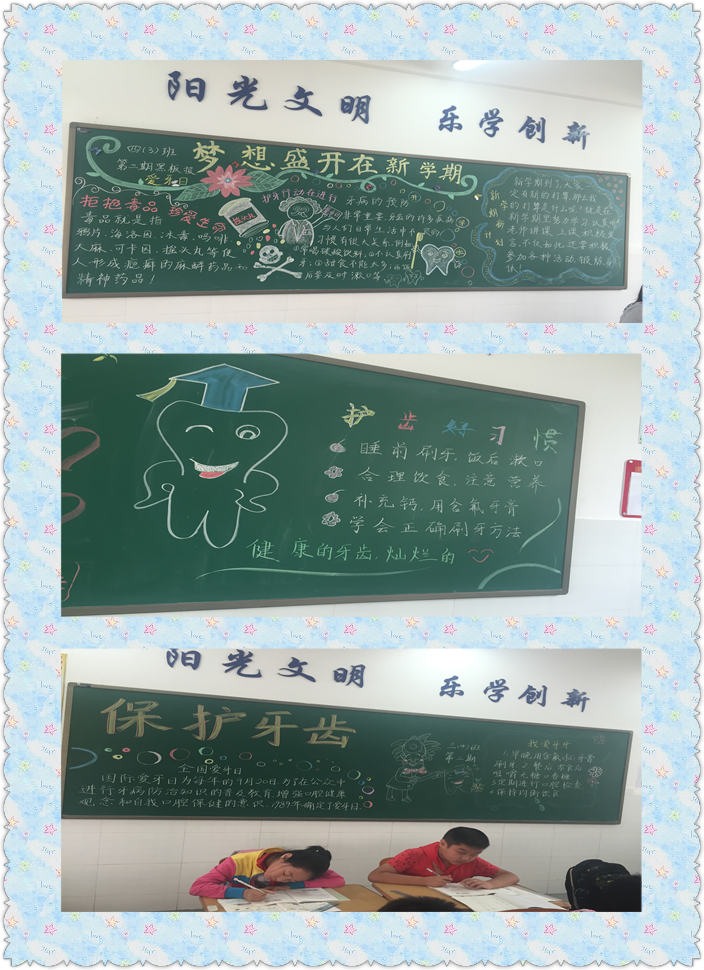 阳光文明
乐学创新
四(3)班
第二期黑板报
爱牙日
梦想盛开在新学期
拒绝毒品
珍爱生命
毒品就是指
鸦片、海洛因、冰毒、吗啡
大麻、可卡因、摇头丸等使
人形成瘾癖的麻醉药品和
精神药品！
护牙行动在进行
牙病的预防
非常重要
与人们日常生活中
习惯有很大关系
后要及时漱口等
新学期计划
新学期到了,大家一
定有新的打算
的打算是什么
新学期里努力学习
老师讲课,上课积极发
言
参加各种活动,锻炼身
体！
护齿好习惯
睡前刷牙,饭后漱口
合理饮食,注意营养
补充钙,用含氟牙膏
学会正确刷牙方法
健康的牙齿,灿烂的
阳光文明
乐学创新
保护牙齿
全国爱牙日
国际爱牙日为每年的9月20日,为了在公众中
进行牙病防治知识的普及教育,增强口腔健康
观念和自我口腔保健的意识,1989年确定了爱牙日.
三(4)班
第二期
我爱牙牙
1.早晚用含氟牙膏
刷牙
咀嚼无糖口香糖
3.定期进行口腔检查
4.保持均衡饮食